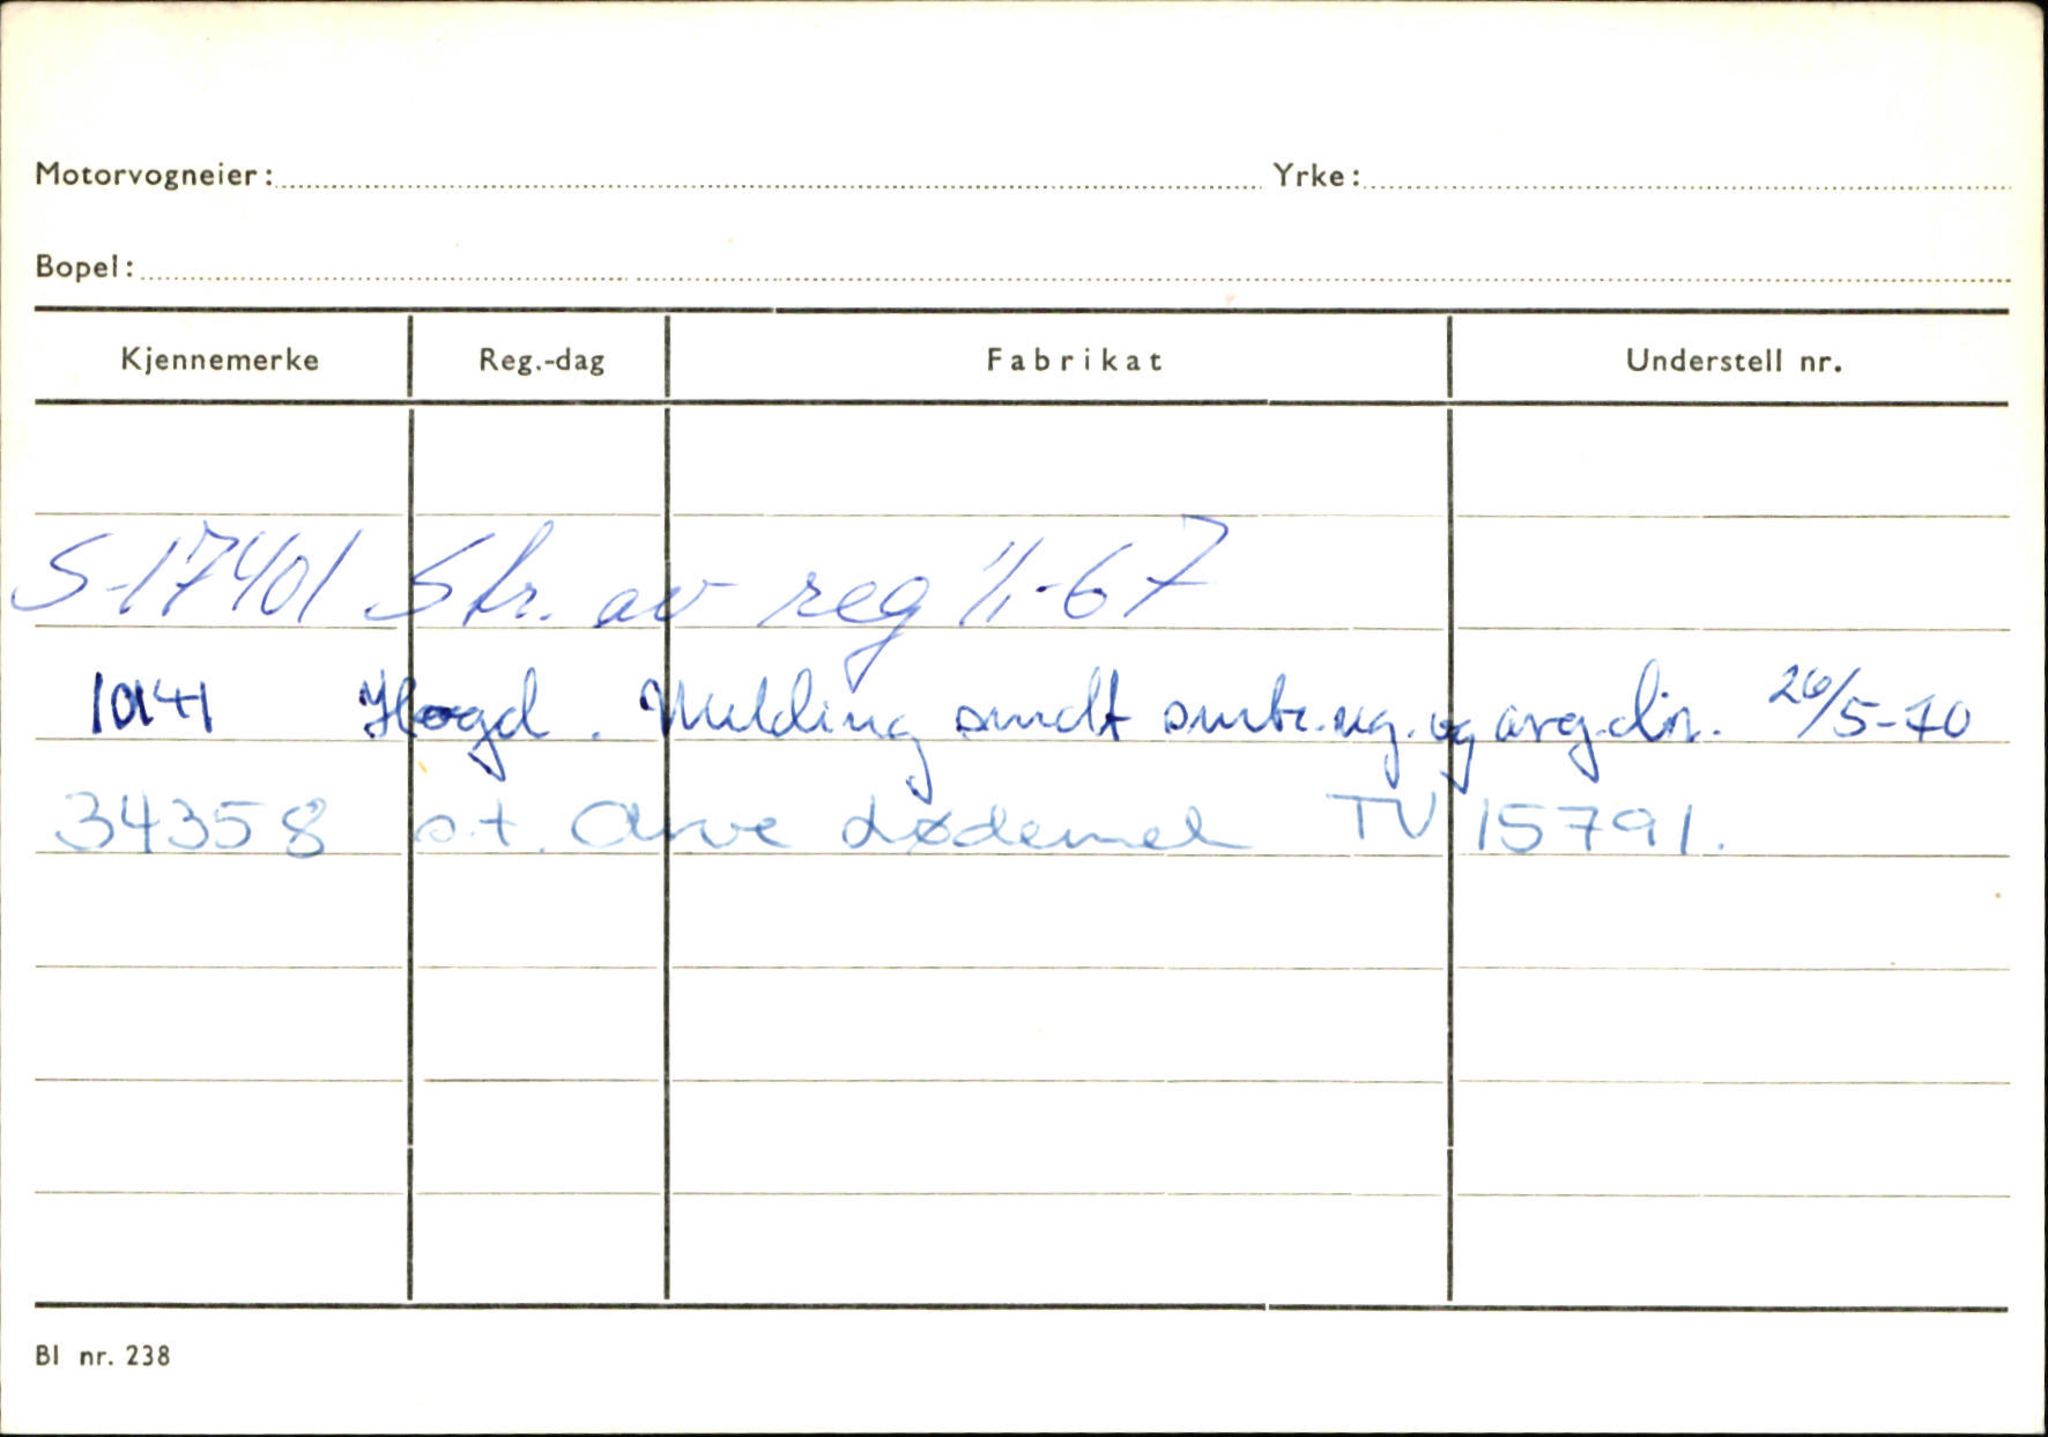 Motorvogneier: Yrke:
Bopel:
Kjennemerke Reg.-dag Fabrikat Understell nr.
S-17401 Str. av reg 1/1-67
10141 Hogd. Melding sendt sentr.reg. og avg.dir. 26/5-70
34358 o.t. Arve Lødemel TV 15791.
Bl nr. 238